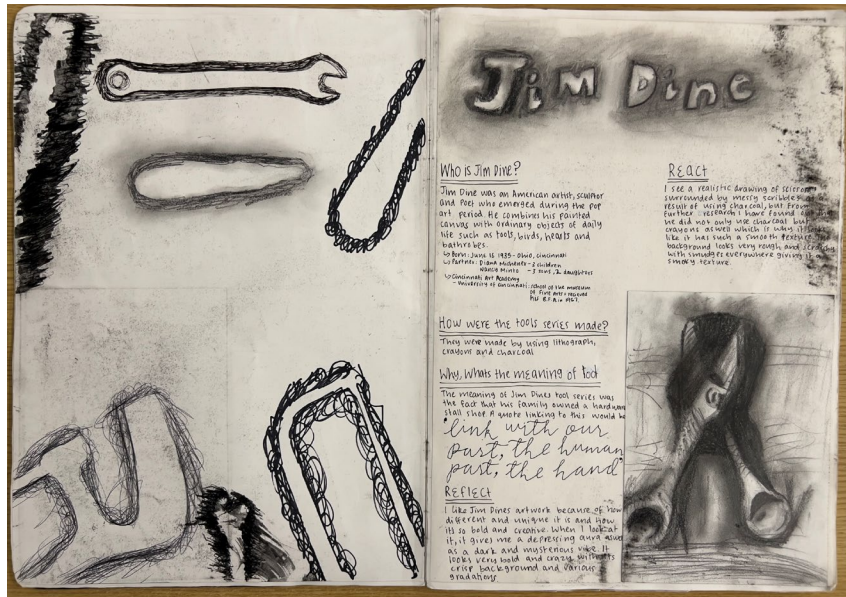 Jim Dine
Who is Jim Dine?
Jim Dine was an American artist, sculptor
and Poet who emerged during the pop
art period. He combines his painted
canvas with ordinary objects of daily
life such as tools, birds, hearts and
bathrobes.
↳ Born: June 16 1935 - Ohio, Cincinnati
↳ Partner: Diana Michener - 2 children
Nancie Minto - 3 sons, 2 daughters
↳ Cincinnati Art Academy
- University of Cincinnati: school of the museum
of Fine Arts + recieved
his B.F.A in 1957.
How were the tools series made?
They were made by using lithograph,
crayons and charcoal
Why, Whats the meaning of Tool
The meaning of Jim Dines tool series was
the fact that his family owned a hardware
stall shop. A quote linking to this would be
"link with our
past, the human
past, the hand"
REFLECT
I like Jim Dines artwork because of how
different and unique it is and how
its so bold and creative. When I look at
it, it gives me a depressing aura aswell
as a dark and mysterious vibe. It
looks very bold and crazy with its
crisp background and various
gradations
REACT
I see a realistic drawing of scissors
surrounded by messy scribbles
result of using charcoal, but from
further research I have found out
he did not only use charcoal but
crayons aswell which is why it looks
like it has such a smooth texture.
background looks very rough and scratchy
with smudges everywhere giving it a
smoky texture.